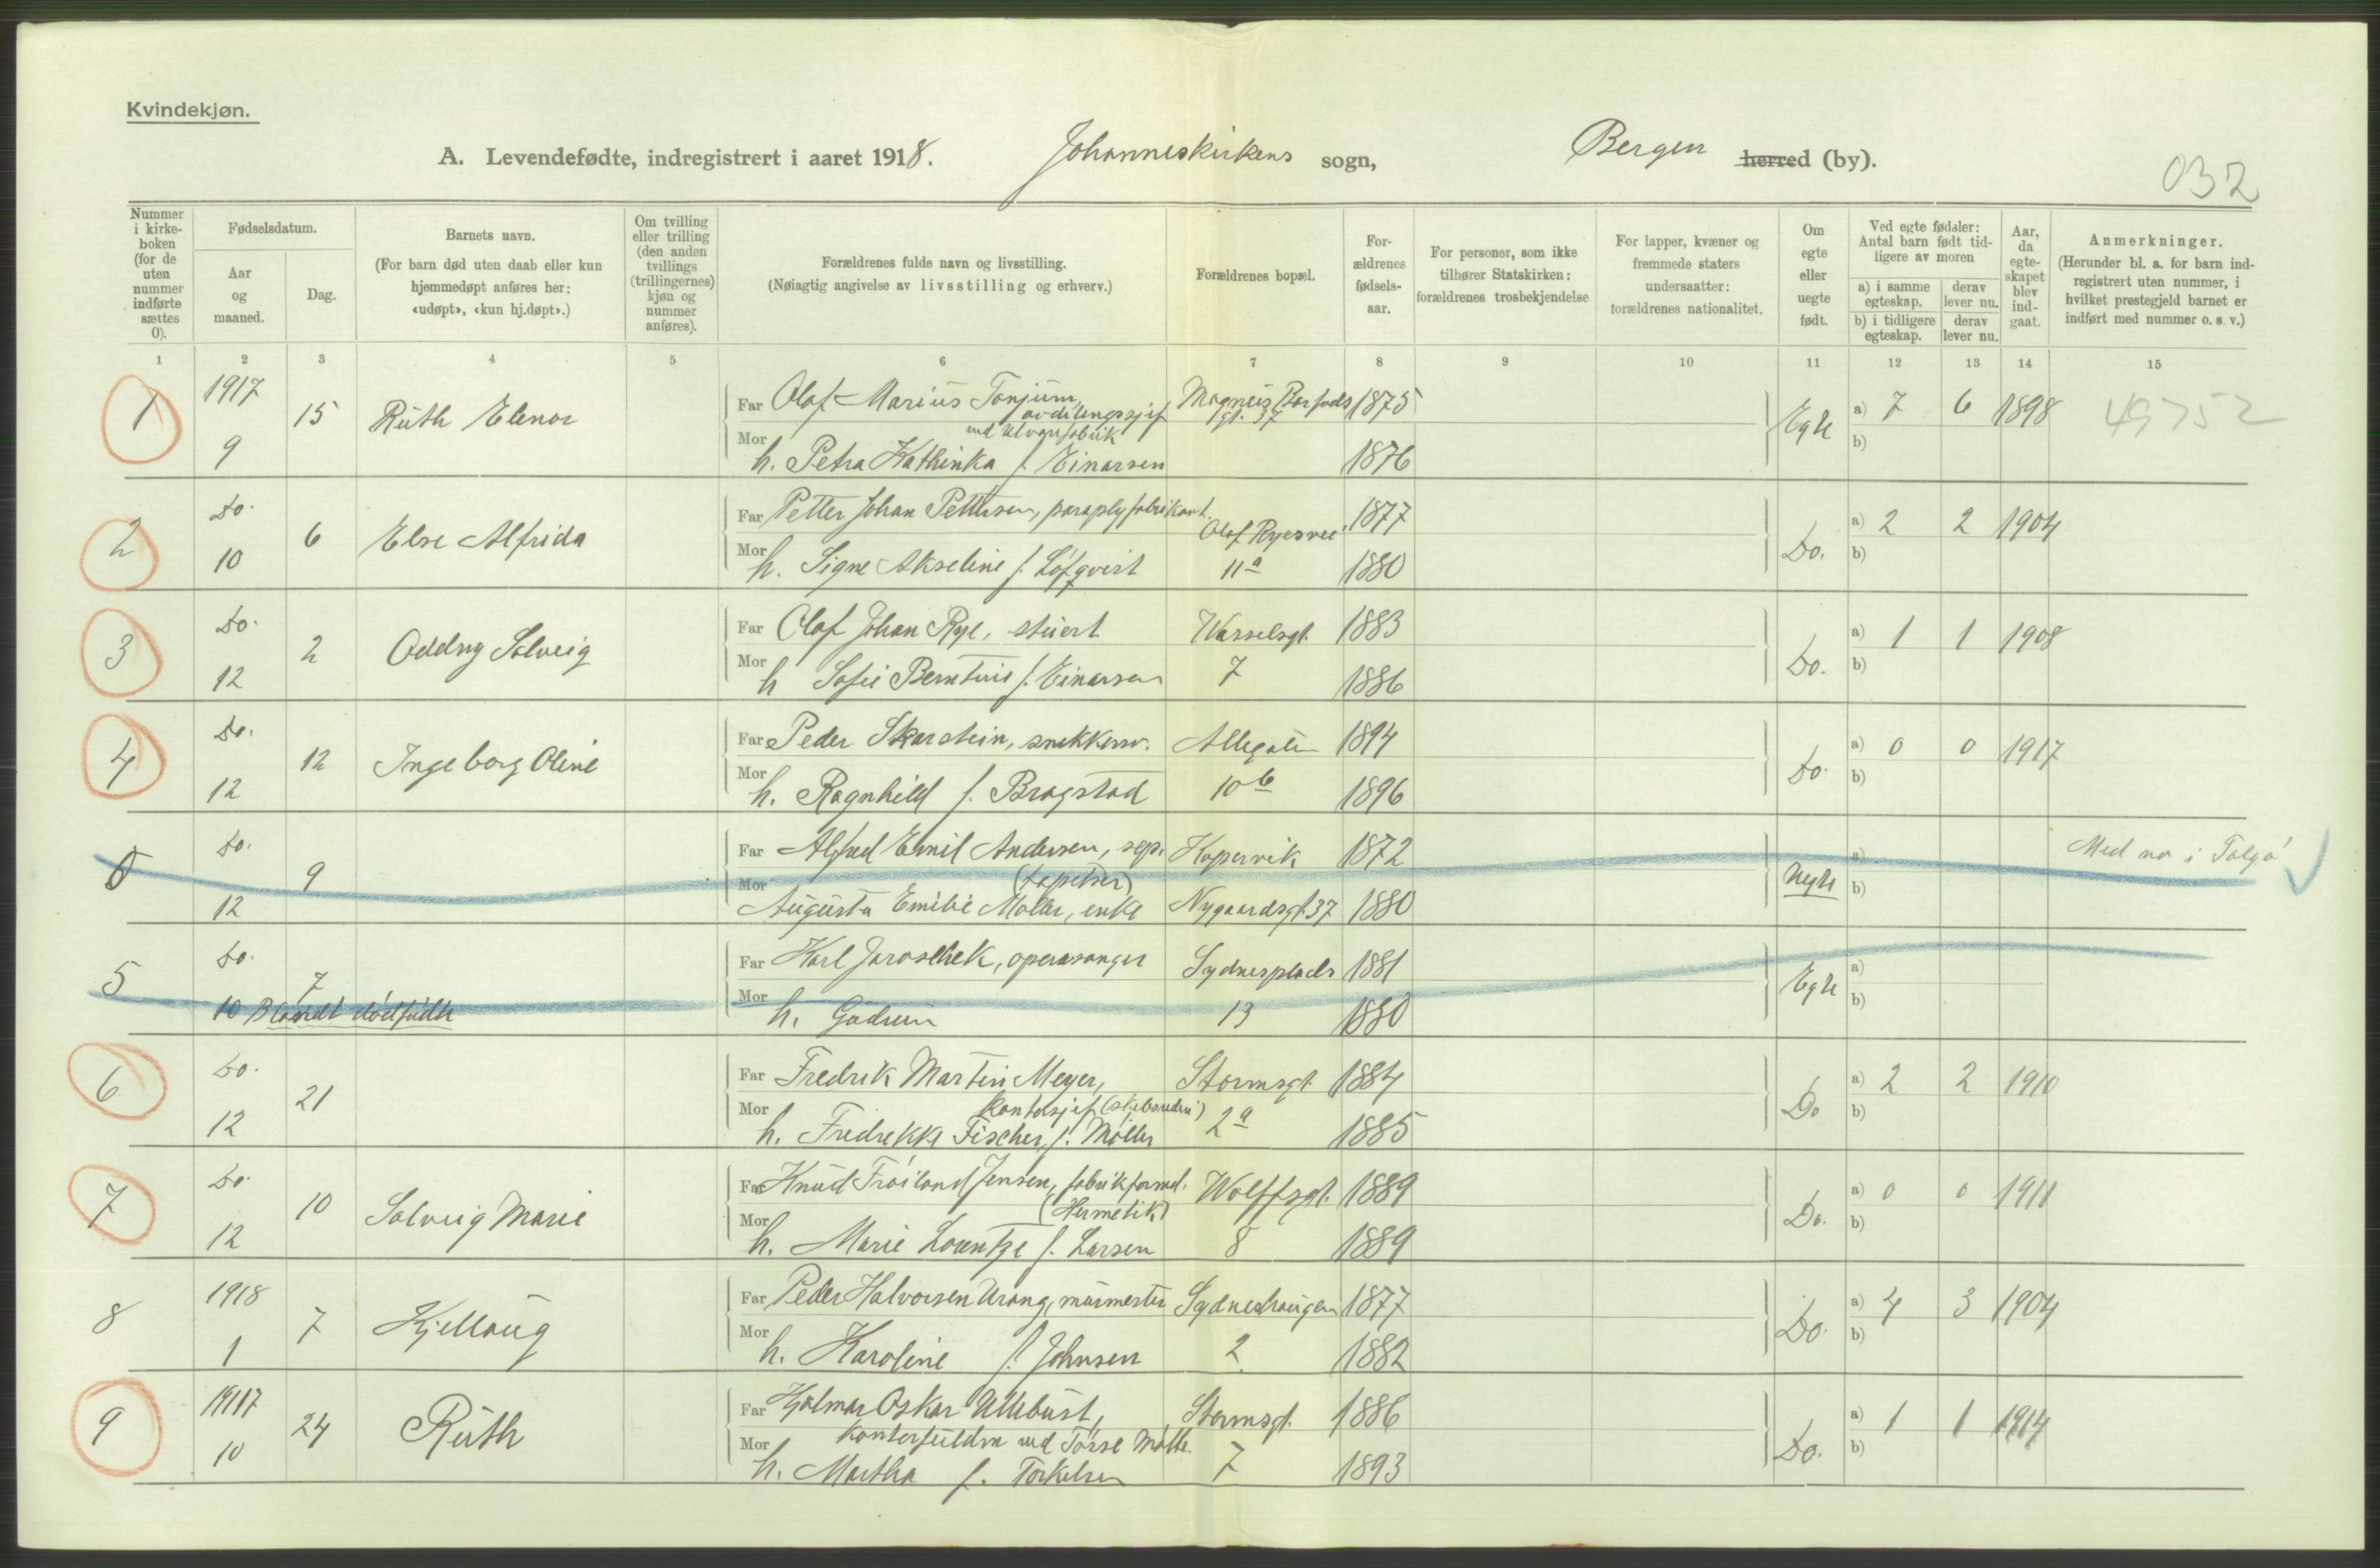 Kvindekjøn.
A. Levendefødte, indregistrert i aaret 1918. Johanneskirkens sogn, Bergen herred (by).
032
Nummer i kirke-boken (for de uten nummer indførte sættes 0).
Fødselsdatum.
Aar og maaned.
Dag.
Barnets navn.
(For barn død uten daab eller kun hjemmedøpt anføres her: «udøpt», «kun hj.døpt».)
Om tvilling eller trilling (den anden tvillings (trillingernes) kjøn og nummer anføres).
Forældrenes fulde navn og livsstilling.
(Nøiagtig angivelse av livsstilling og erhverv.)
Forældrenes bopæl.
For-ældrenes fødsels-aar.
For personer, som ikke tilhører Statskirken: forældrenes trosbekjendelse
For lapper, kvæner og fremmede staters undersaatter: forældrenes nationalitet.
Om egte eller uegte født.
Ved egte fødsler: Antal barn født tid-ligere av moren
a) i samme egteskap. derav lever nu.
b) i tidligere egteskap. derav lever nu.
Aar, da egte-skapet blev ind-gaat.
Anmerkninger.
(Herunder bl. a. for barn ind-registrert uten nummer, i hvilket prestegjeld barnet er indført med nummer o. s. v.)
1 2 3 4 5 6 7 8 9 10 11 12 13 14 15
1 1917 9 15 Ruth Elenor
Far Olaf Marius Tonjum, avdelingssjef Magnus Barfods gt. 37 1875
ved Ulvarefabrik
Mor h. Petra Kathinka f. Einarsen 1876
Egte a) 7 6 1898 49752
b)
2 Do. 10 6 Else Alfrida
Far Petter Johan Pettersen, paraplyfabrikant. Olaf Ryesvei 1877
Mor h. Signe Akseline f. Löfqvist 11a 1880
Do. a) 2 2 1904
b)
3 Do. 12 2 Oddny Solveig
Far Olaf Johan Rye, stuert Wesselsgt. 1883
Mor h Sofie Berntine f. Einarsen 7 1886
Do. a) 1 1 1908
b)
4 Do. 12 12 Ingeborg Oline
Far Peder Skarstein, snekkersv. Allegaten 1894
Mor h. Ragnhild f. Bragstad 10b 1896
Do. a) 0 0 1917
b)
0 Do. 12 9
Far Alfred Emil Andersen, sep. Kopervik 1872
(tapetser)
Mor Augusta Emilie Møller, enke Nygaardsgt. 37 1880
Uegte a)
b)
Med no i Tolga
5 Do. 10 7 Blandt dødfødte
Far Karl Jaroschek, operasanger Sydnesplads 1881
Mor h. Gudrun 13 1880
Egte a)
b)
6 Do. 12 21
Far Fredrik Martin Meyer, Stormsgt. 1884
kontorsjef (skibsrederi)
Mor h. Fredrikke Fischer, f. Møller 2a 1885
Do a) 2 2 1910
b)
7 Do. 12 10 Solveig Marie
Far Knud Fröiland Jensen, fabrikformd. Wolffsgt. 1889
(Hermetik)
Mor h. Marie Lorentze f. Larsen 8 1889
Do. a) 0 0 1911
b)
8 1918 1 7 Kjellaug
Far Peder Halvorsen Urang, murmester Sydneshaugen 1877
Mor h. Karoline f. Johnsen 2 1882
Do. a) 4 3 1904
b)
9 1917 10 24 Ruth
Far Hjalmar Oskar Ullebust, Stormsgt. 1886
Kontorfuldm ved Mølle.
Mor h. Martha f. Torkelsen 7 1893
Do. a) 1 1 1914
b)